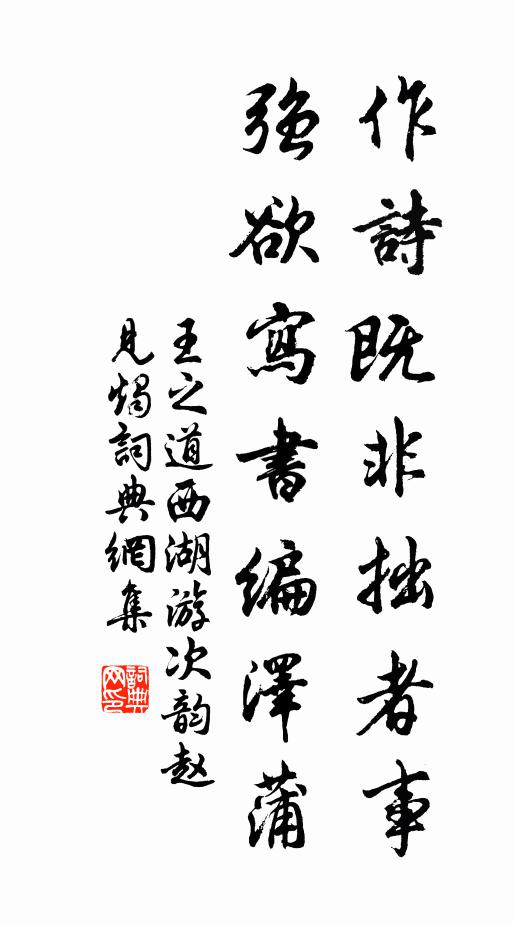 作詩既非拙者事
強欲寫書編澤蒲
王之道西湖游次韵赵
見燭詞典網集
詞典网印